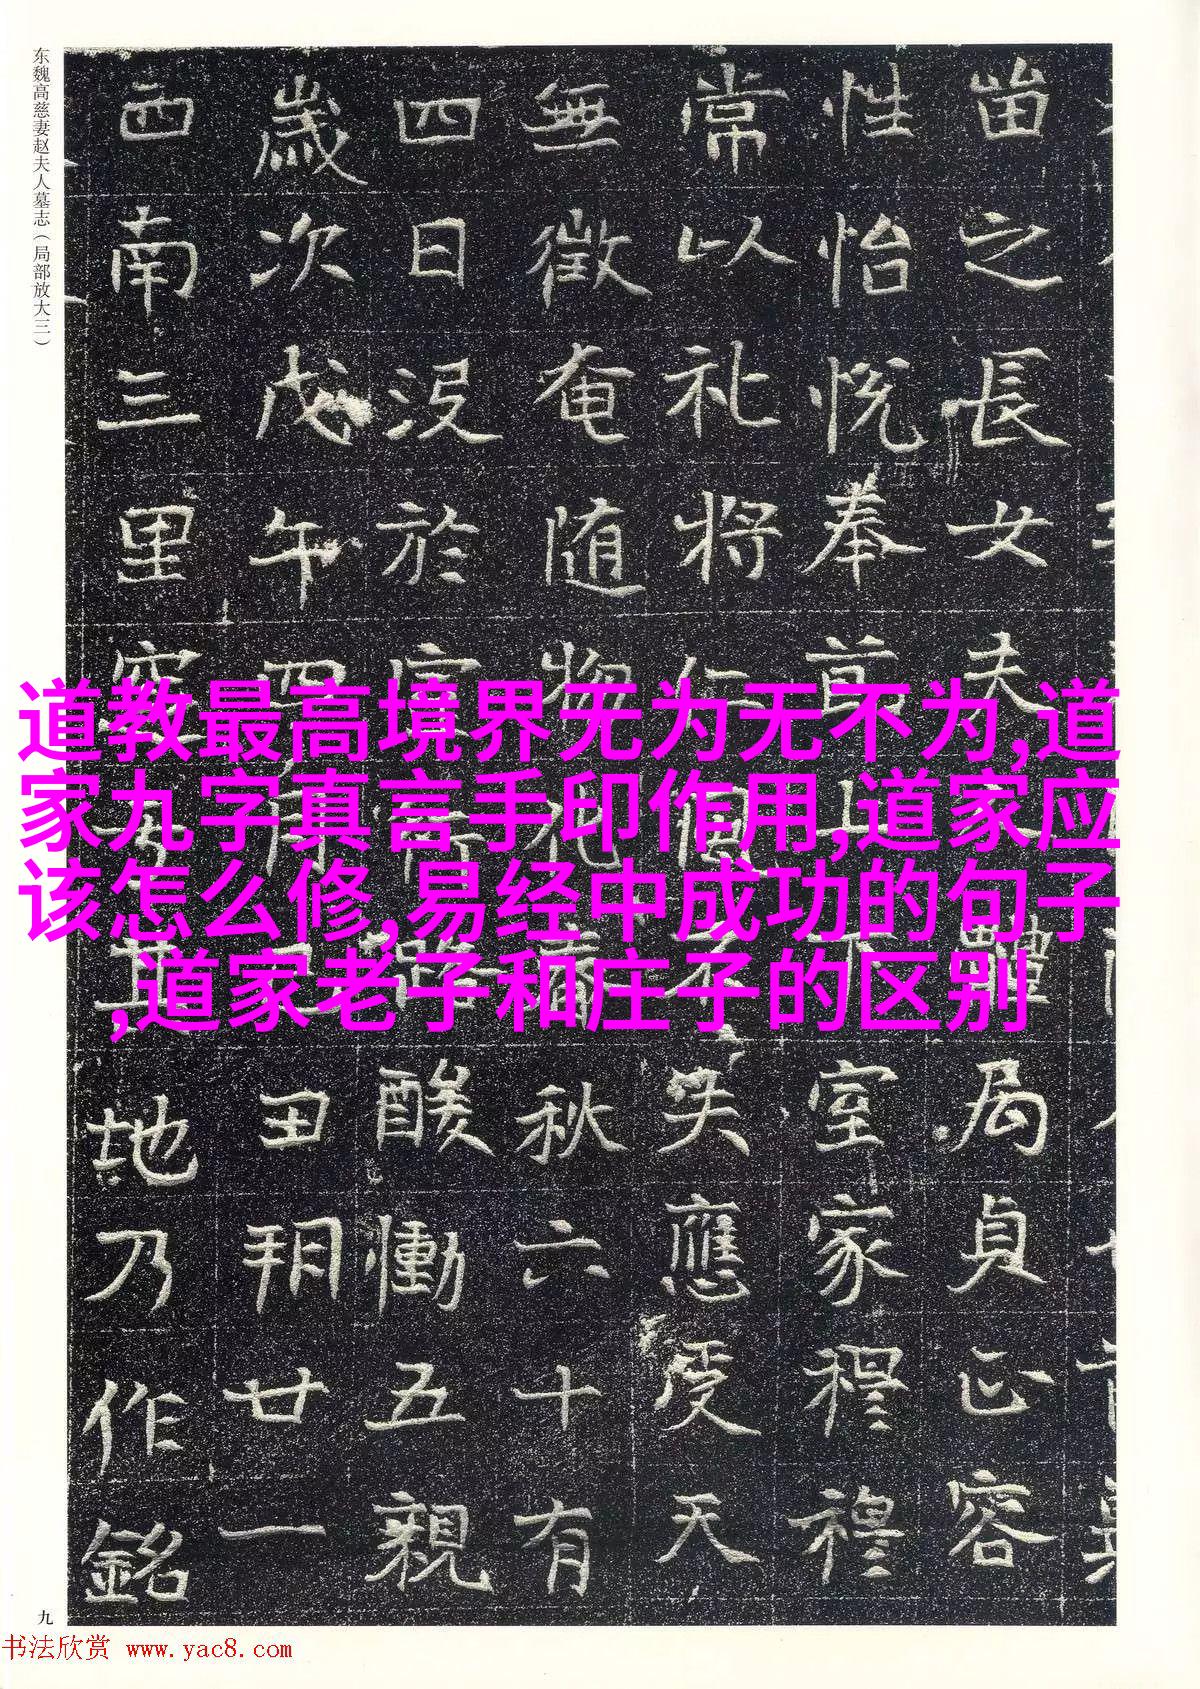 东魏高慈妻赵夫人墓志（局部放大三）
苗之長女夫體局貞正容
性怡悦奉前室家穆穆
常以礼将仁不失應受天
無徵奄随物化秋六十有
四日没於官酸慟五親
歲次戊午四月丑朔廿一
西南三里地乃作銘
道教最高境界无为无不为,道
家九字真言手印作用,道家应
该怎么修,易经中成功的句子
,道家老子和庄子的区别
九
书法欣赏 www.yac8.com